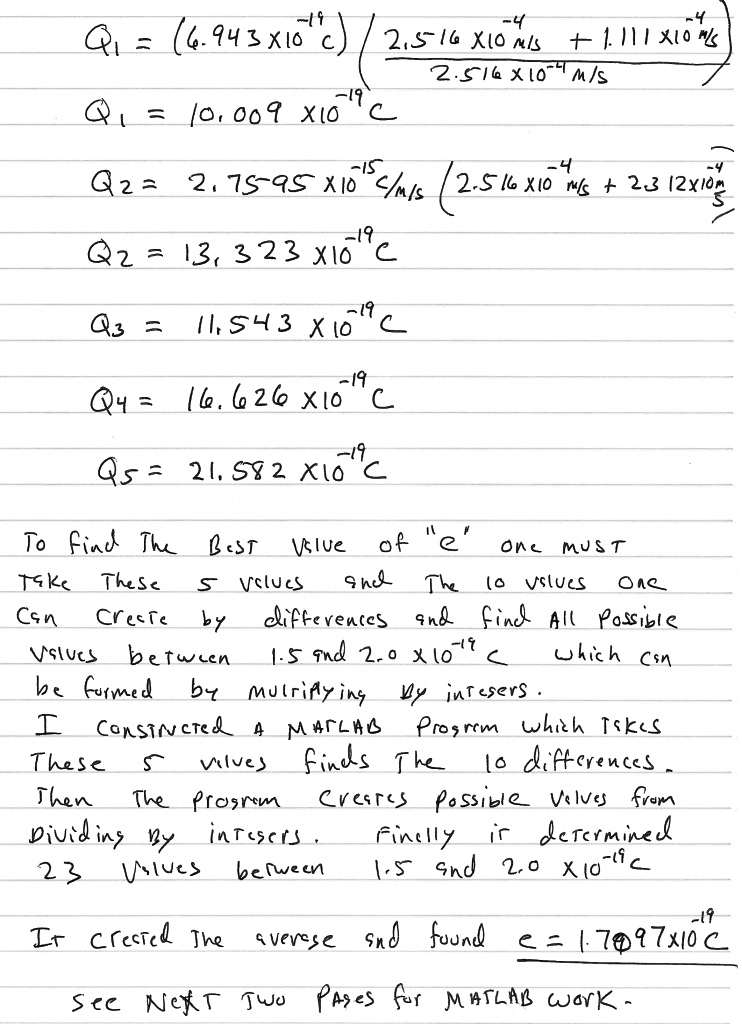 Q1 = (6.943 x10^-19 C) ( 2.516 x10^-4 m/s + 1.111 x10^-4 m/s / 2.516 x 10^-4 m/s )
Q1 = 10.009 x10^-19 C
Q2 = 2.7595 x10^-15 C/m/s ( 2.516 x10^-4 m/s + 2.312 x10^-4 m/s )
Q2 = 13.323 x10^-19 C
Q3 = 11.543 x 10^-19 C
Q4 = 16.626 x10^-19 C
Q5 = 21.582 x10^-19 C
To find The BEST Value of "e" one must
Take These 5 values and The 10 values one
Can Create by differences and find All Possible
Values between 1.5 and 2.0 x10^-19 C which can
be formed by multiplying by integers.
I Constructed A MATLAB Program which Takes
These 5 values finds The 10 differences.
Then The program Creates possible Values from
Dividing By integers. Finally it determined
23 Values between 1.5 and 2.0 x10^-19 C
It created The average and found e = 1.7097x10^-19 C
See Next Two Pages for MATLAB Work.